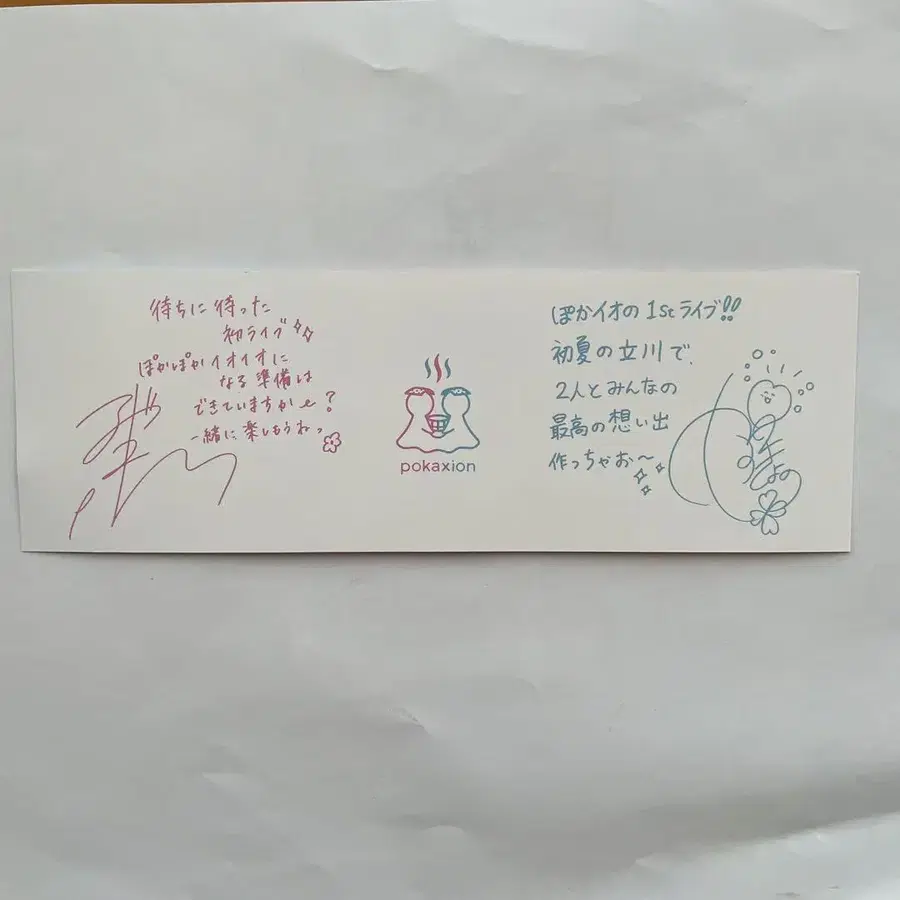 待ちに待った
初ライブ
ぽかぽかイオイオに
なる準備は
できていますかe?
一緒に楽しもうねっ
pokaxion
ぽかイオの1stライブ!!
初夏の立川で、
2人とみんなの
最高の想い出
作っちゃお〜